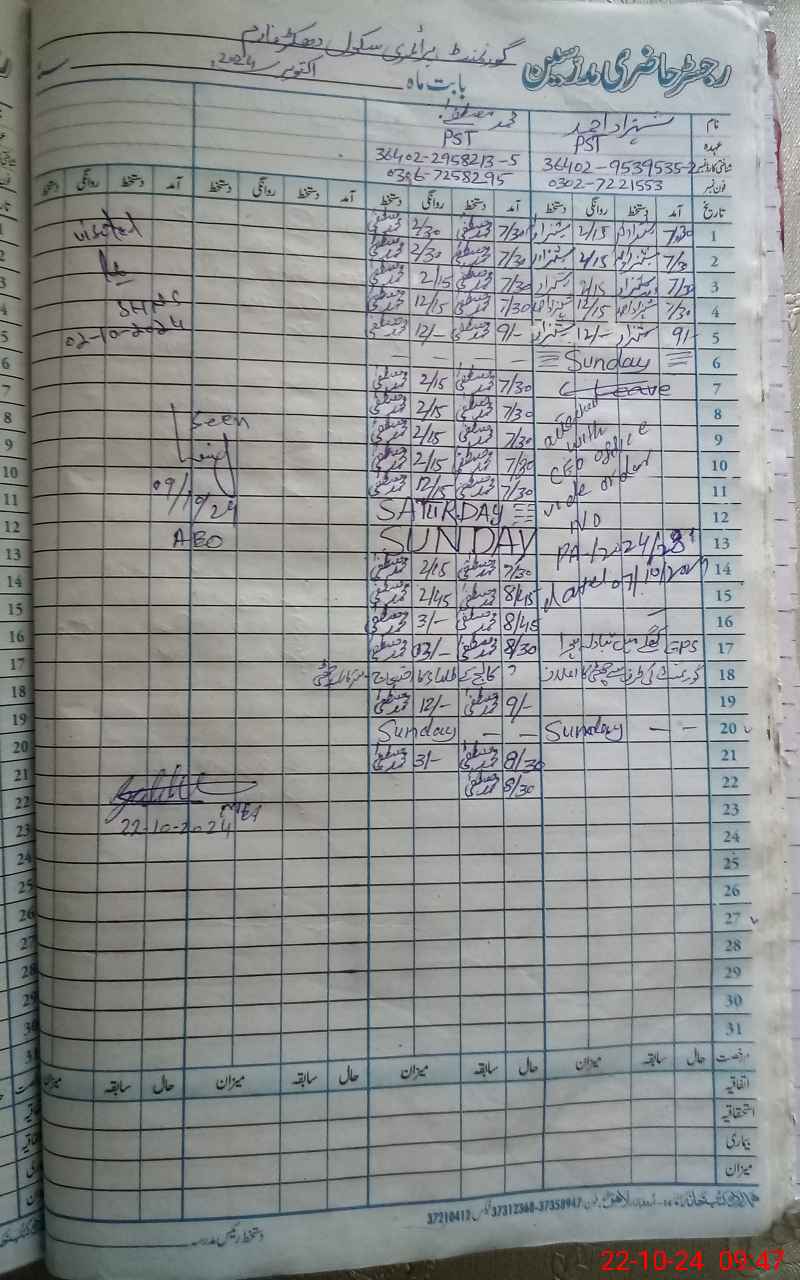 رجسٹر حاضری مدرسین
گورنمنٹ پرائمری سکول
بابت ماہ اکتوبر 2024
نام شہزاد احمد محمد مصطفیٰ
عہدہ PST PST
شناختی کارڈ نمبر 36402-9539535-2 36402-2958213-5
فون نمبر 0302-7221553 0306-7258295
تاریخ آمد دستخط روانگی دستخط آمد دستخط روانگی دستخط آمد دستخط روانگی دستخط آمد دستخط روانگی دستخط
1 7/30 شہزاد احمد 2/15 شہزاد 7/30 محمد مصطفیٰ 2/30 محمد مصطفیٰ visited
2 7/30 شہزاد احمد 2/15 شہزاد 7/30 محمد مصطفیٰ 2/30 محمد مصطفیٰ
3 7/30 شہزاد 2/15 شہزاد 7/30 محمد مصطفیٰ 2/15 محمد مصطفیٰ
4 7/30 شہزاد احمد 12/15 شہزاد احمد 7/30 محمد مصطفیٰ 12/15 محمد مصطفیٰ
5 9/- شہزاد 12/- شہزاد 9/- محمد مصطفیٰ 12/- محمد مصطفیٰ 02-10-2024
6 Sunday - - - -
7 Leave 7/30 محمد مصطفیٰ 2/15 محمد مصطفیٰ
8 attached 7/30 محمد مصطفیٰ 2/15 محمد مصطفیٰ Seen
9 with 7/30 محمد مصطفیٰ 2/15 محمد مصطفیٰ
10 CEO office 7/30 محمد مصطفیٰ 2/15 محمد مصطفیٰ
11 vide order 7/30 محمد مصطفیٰ 12/15 محمد مصطفیٰ 09/10/24
12 NO SATURDAY AEO
13 PA-1/2024/28 SUNDAY
14 dated 07/10/2024 7/30 محمد مصطفیٰ 2/15 محمد مصطفیٰ
15 8/45 محمد مصطفیٰ 2/45 محمد مصطفیٰ
16 8/45 محمد مصطفیٰ 3/- محمد مصطفیٰ
17 GPS میں تبادلہ ہوا 8/30 محمد مصطفیٰ 03/- محمد مصطفیٰ
18 گورنمنٹ کی طرف سے چھٹی کا اعلان کالج کے طلباء کا احتجاج
19 9/- محمد مصطفیٰ 12/- محمد مصطفیٰ
20 - - Sunday - - Sunday
21 8/30 محمد مصطفیٰ 3/- محمد مصطفیٰ
22 8/30 محمد مصطفیٰ
23 22-10-2024
24
25
26
27
28
29
30
31
رخصت حال سابقہ میزان حال سابقہ میزان حال سابقہ میزان حال سابقہ میزان
اتفاقیہ
استحقاقیہ
بیماری
میزان
37210412 37312360-37358947
دستخط رئیس مدرسہ
22-10-24 09:47